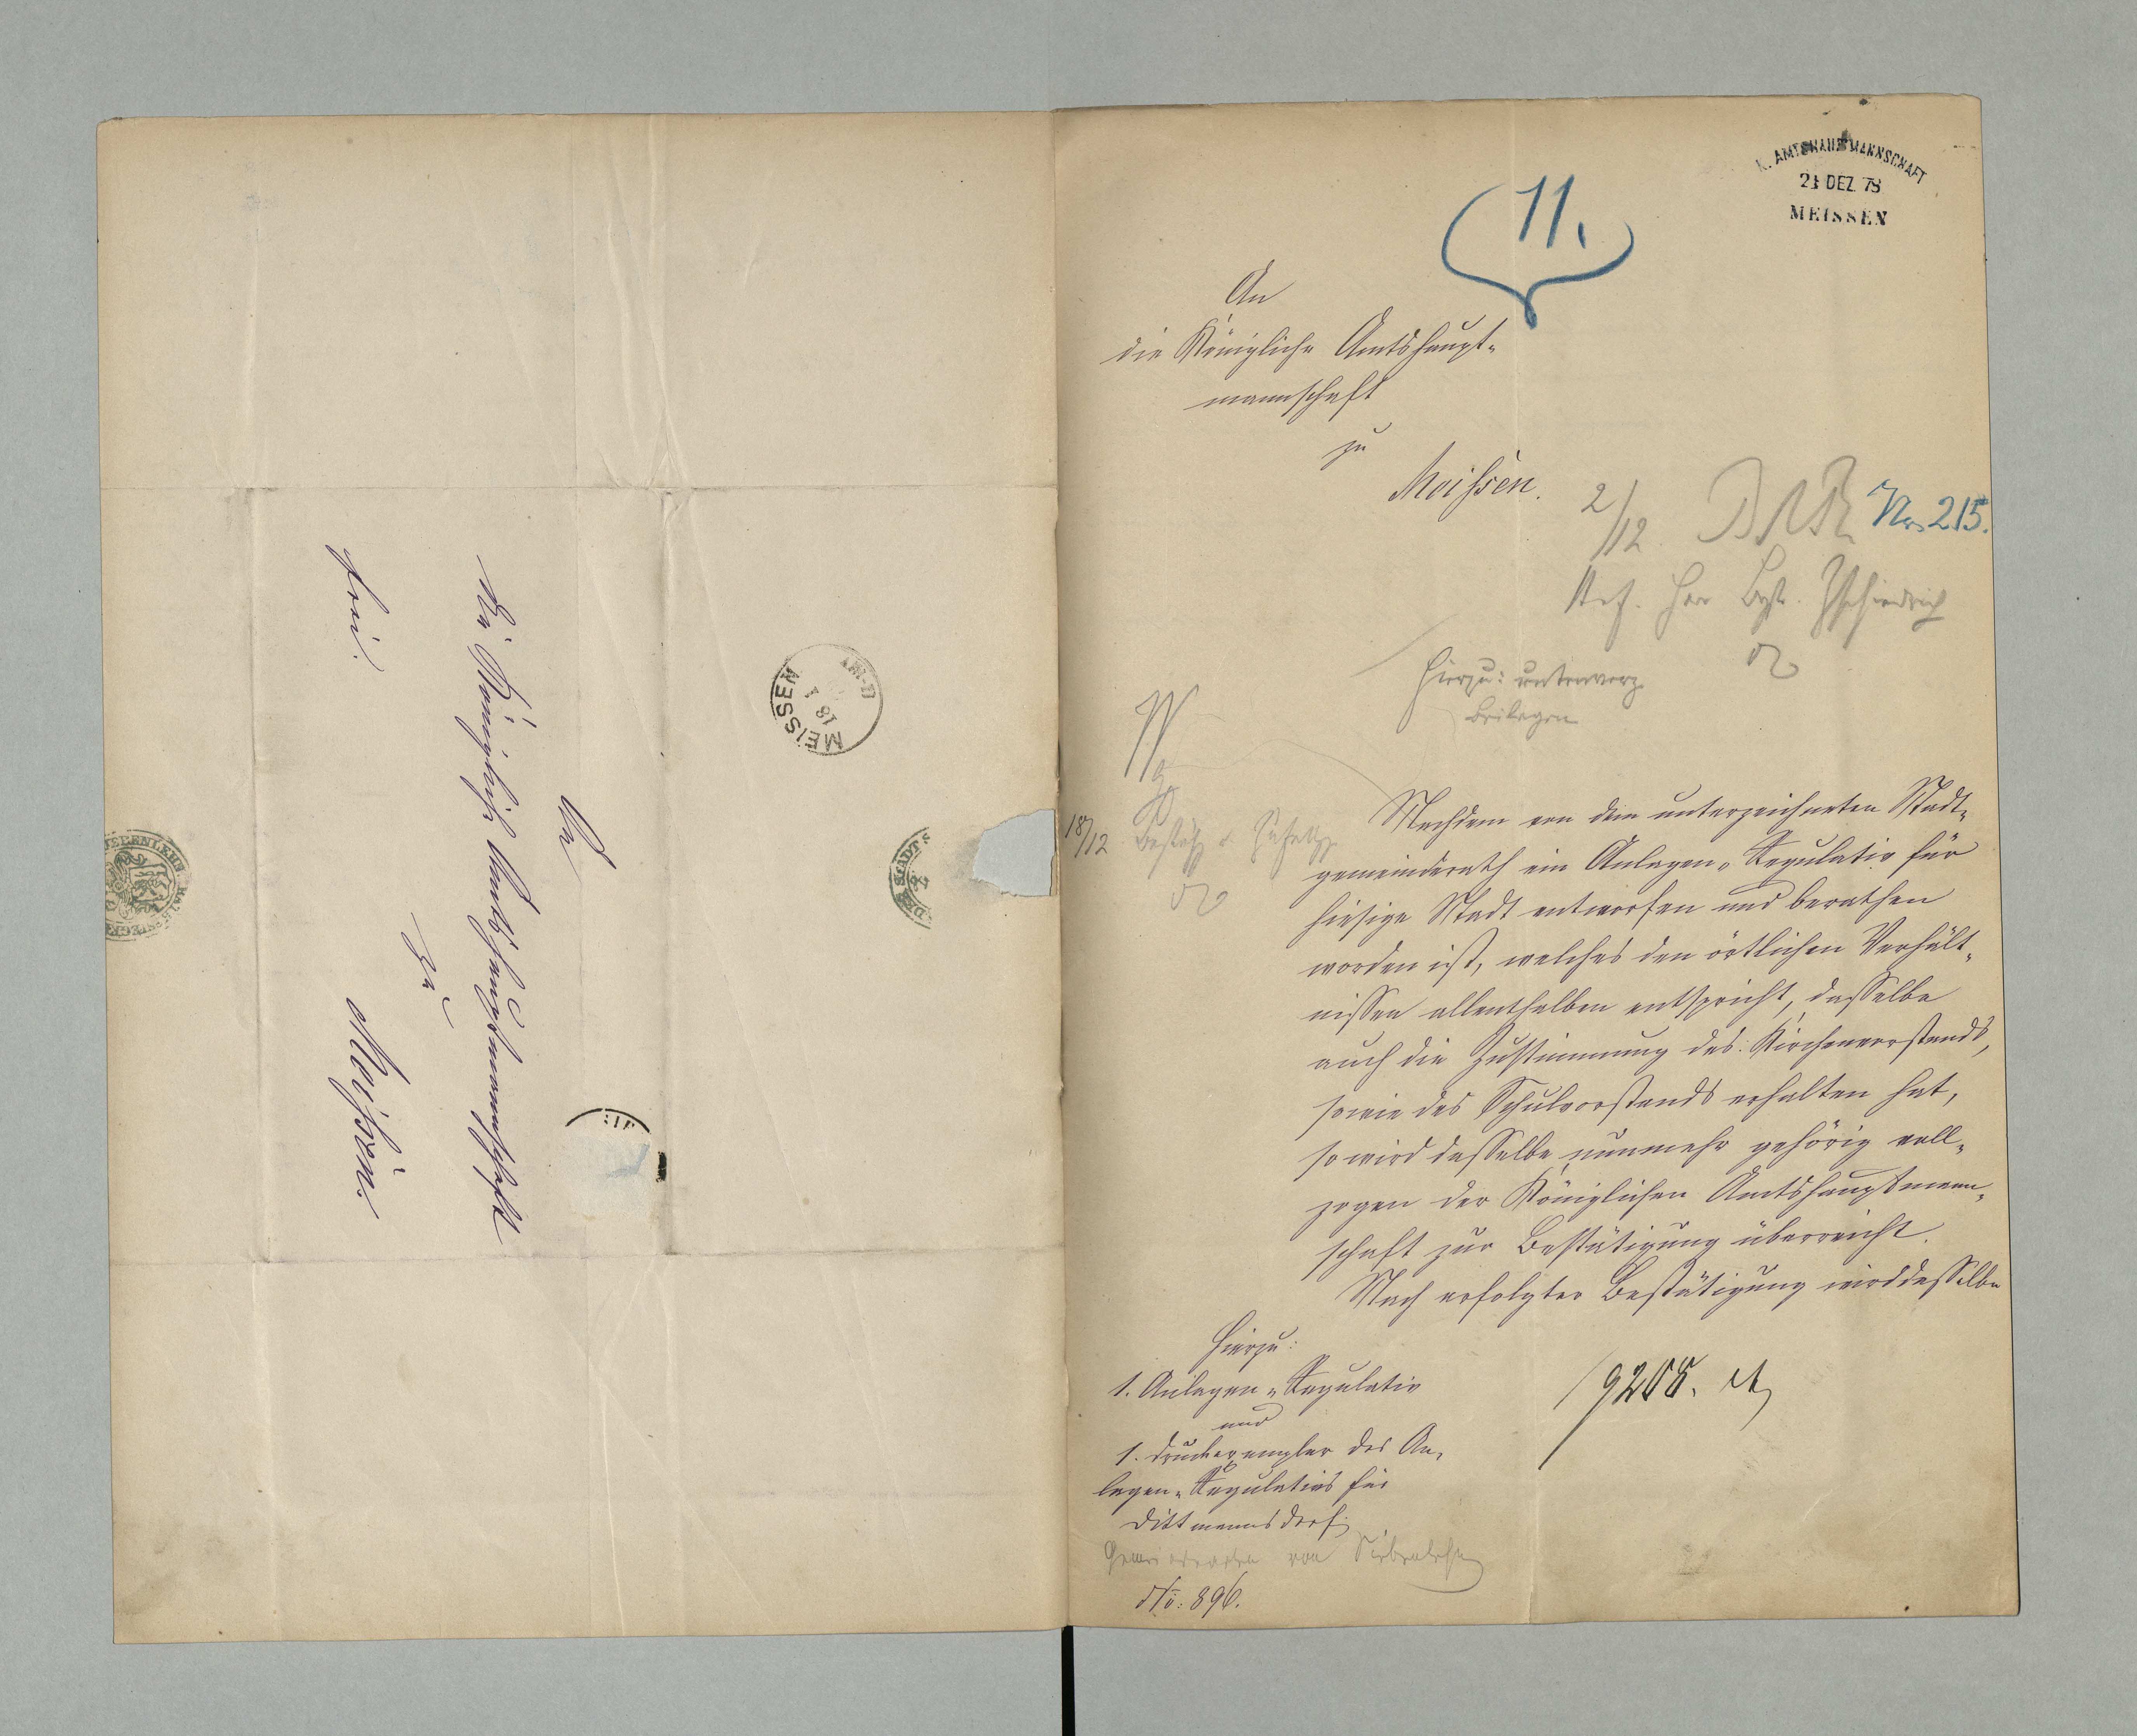 An
die Königliche Amtshauptmannschaft
zu
Meißen.
frei.
MEISSEN
K. AMTSHAUPTMANNSCHAFT
21 DEZ. 78
MEISSEN
11.
An
die Königliche Amtshaupt-
mannschaft
zu
Meißen.
2/12.
No 215.
Ref. Herr
hierzu: untenverz.
Beilagen
18/12
Nachdem von dem unterzeichneten Stadt-
gemeinderath ein Anlagen-Regulativ für
hiesige Stadt entworfen und berathen
worden ist, welches den örtlichen Verhält-
nissen allenthalben entspricht, dasselbe
auch die Zustimmung des Kirchenvorstands,
sowie des Schulvorstands erhalten hat,
so wird dasselbe nunmehr gehörig voll-
zogen der Königlichen Amtshauptmann-
schaft zur Bestätigung überreicht.
Nach erfolgter Bestätigung wird dasselbe
Hierzu:
1. Anlagen-Regulativ
und
1. Druckexemplar des An-
lagen-Regulativs für
Dittmannsdorf.
von Siebenlehn
No: 896.